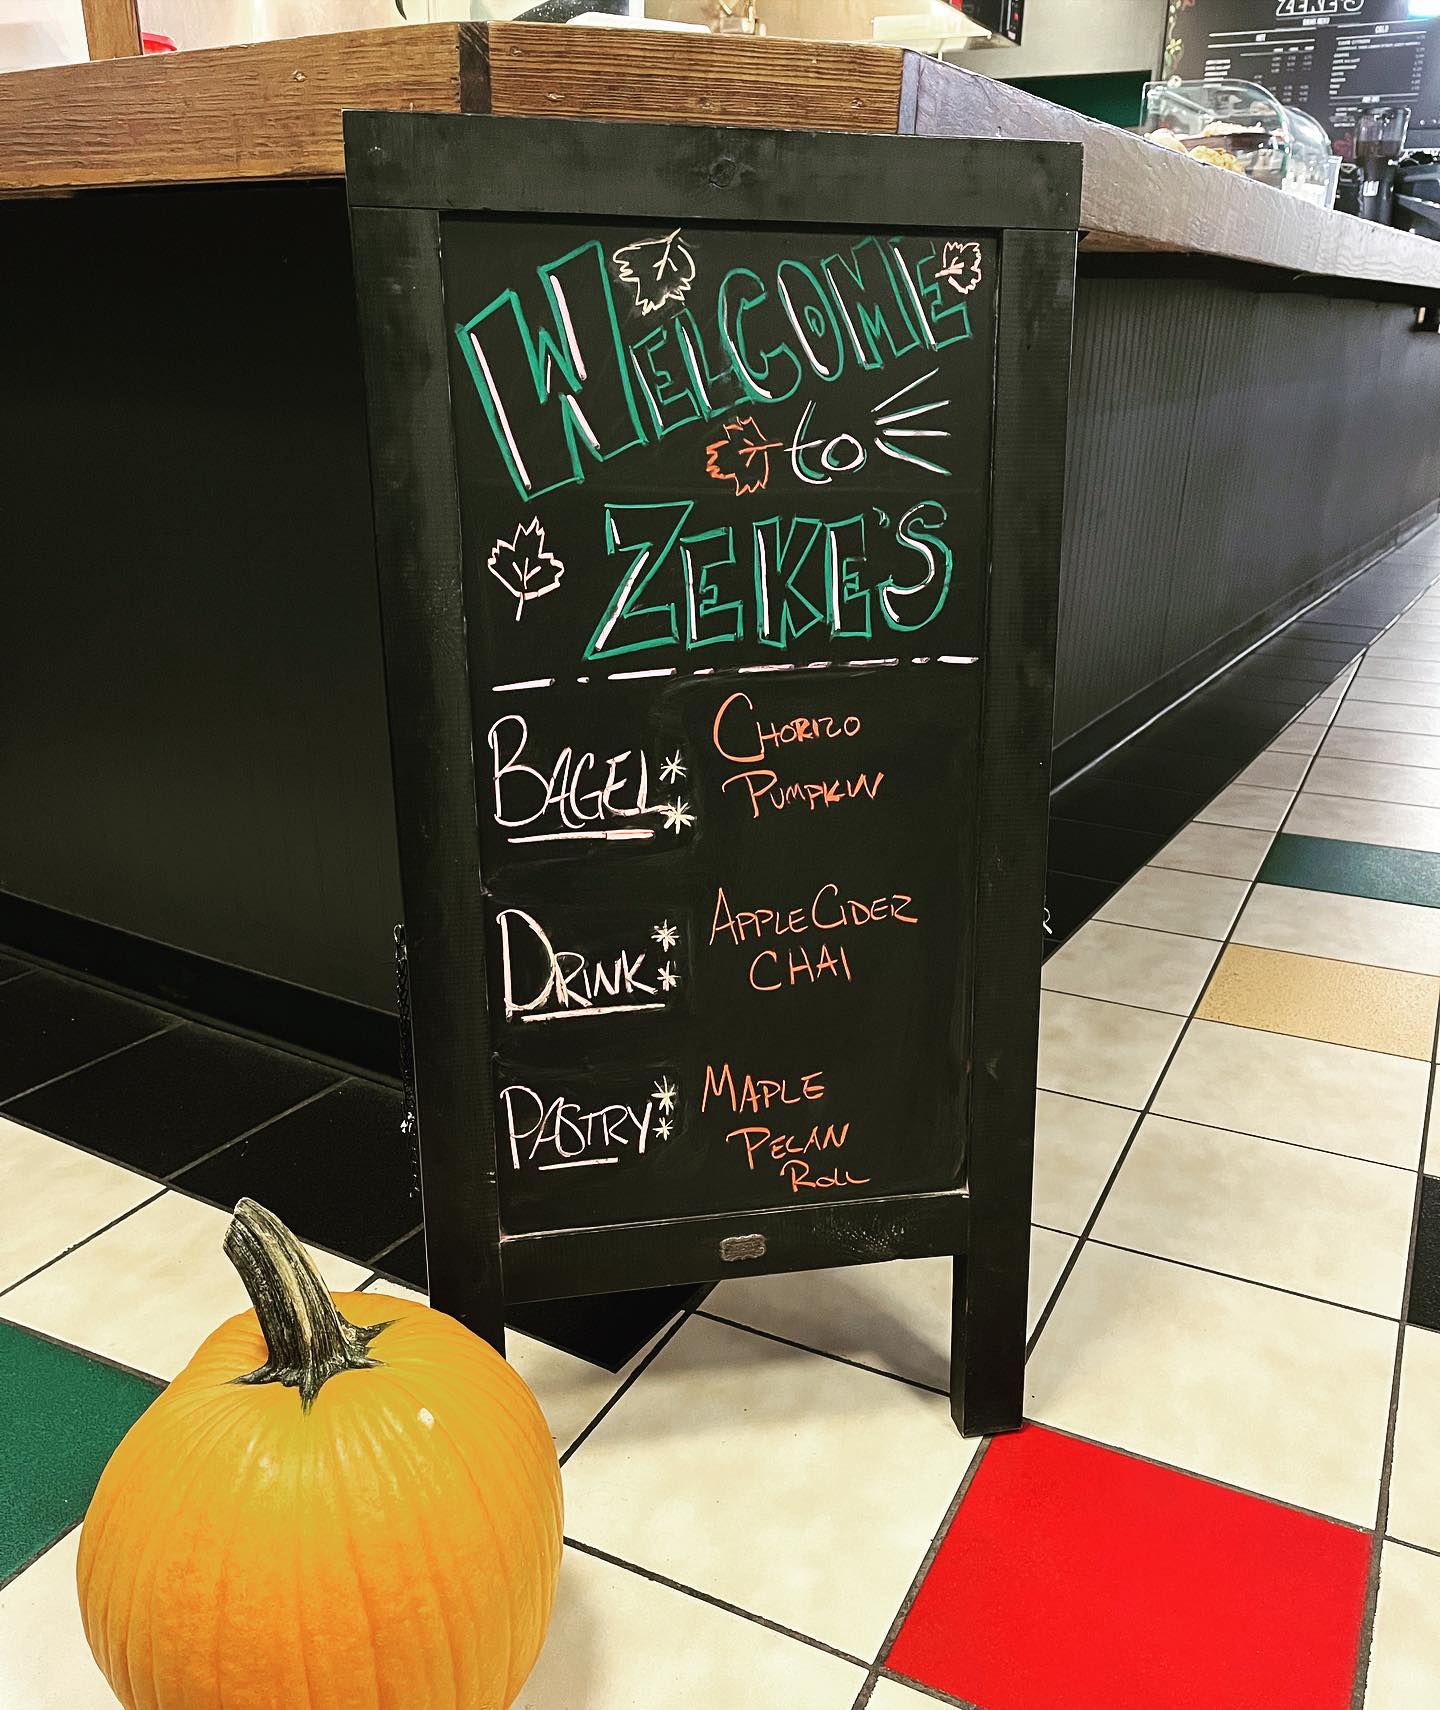 ZEKE'S
DRINK MENU
HOT
COLD
WELCOME
to
ZEKE'S
BAGEL:
CHORIZO
PUMPKIN
DRINK:
APPLE CIDER
CHAI
PASTRY:
MAPLE
PECAN
ROLL